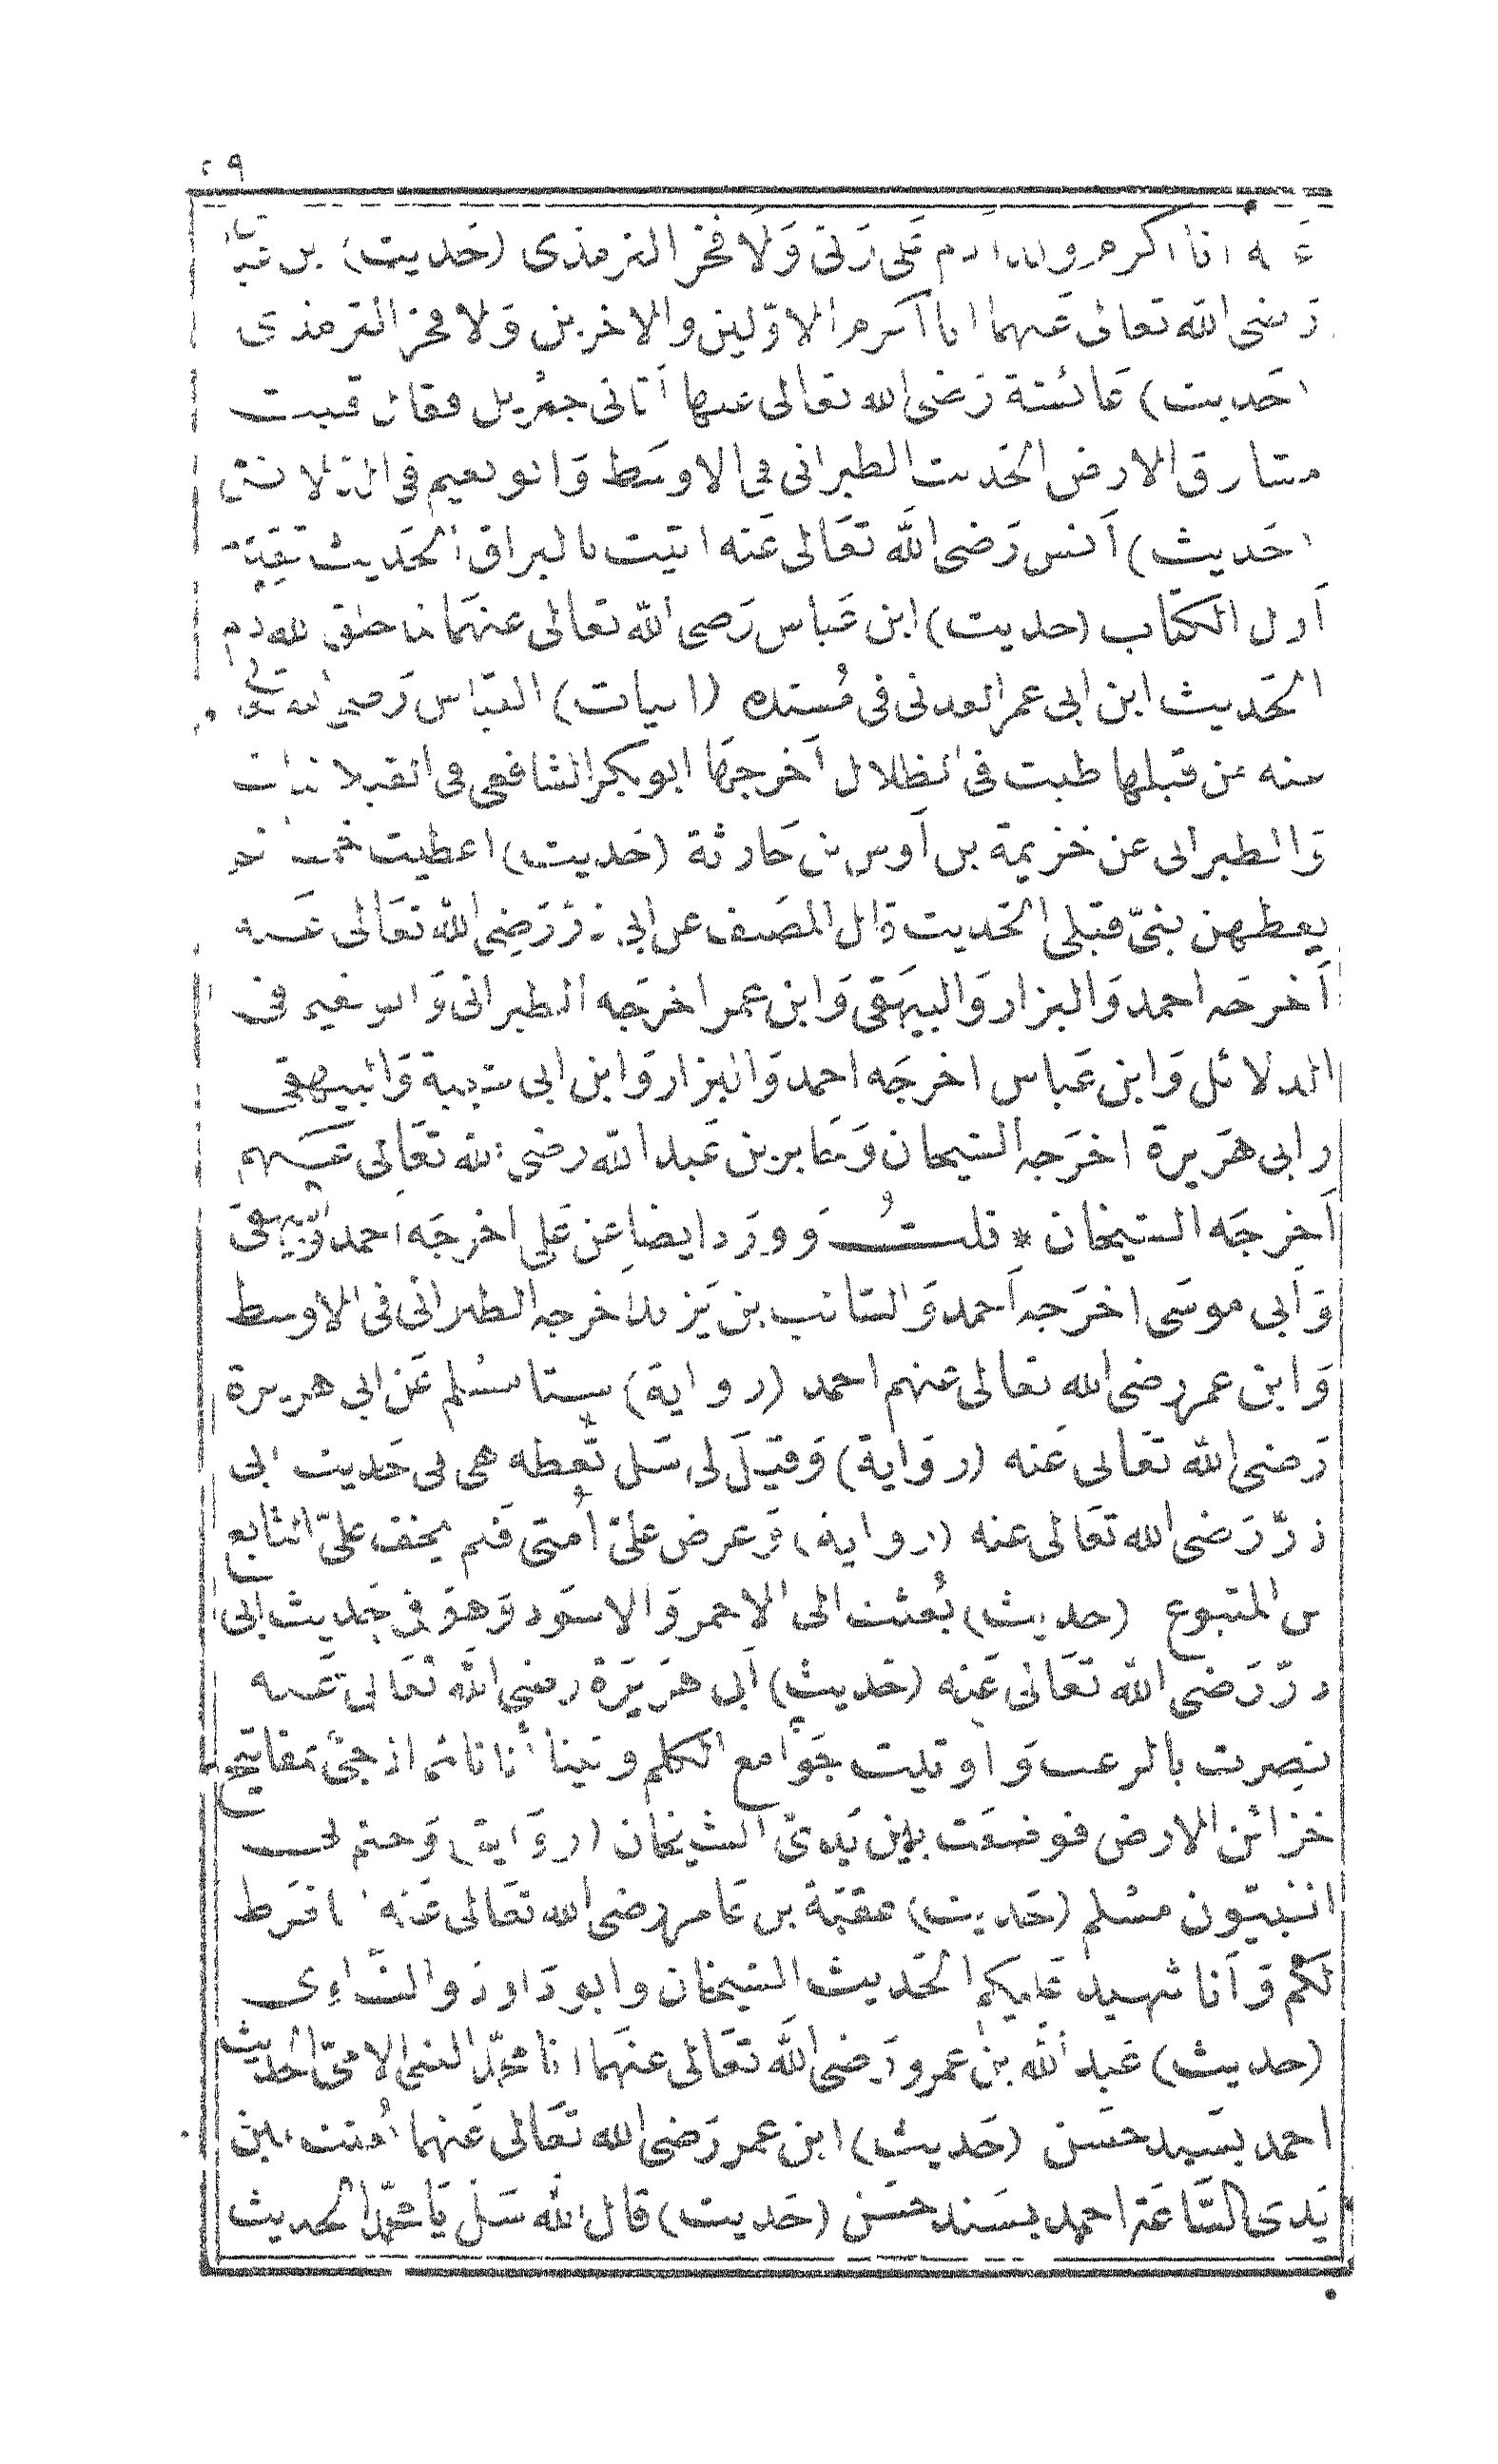 ٢٩
عَنه انا اكرم ولد ادم عَلى رَبى وَلَا فخر الترمذى (حَديث) بن عَباس
رَضى الله تعَالى عَنهما انا اكرم الاوّلين والاخرين وَلا فخر الترمذى
(حَديث) عَائشة رَضى الله تعَالى عنها أتانى جبْريل فقال قلبت
مشارق الارض الحَديث الطبرانى فى الاوسَط وَابو نعيم فى الدلائل
(حَديث) أنس رَضى الله تعَالى عَنه اتيت بالبراق الحَديث تقدم
أول الكتَاب (حديث) ابن عَباس رَضى الله تعَالى عنهمَا لما خلق الله ادم
الحَديث ابن ابى عمر العدنى فى مُسنده (ابيات) العَبّاس رَضى الله تعَالى
عنه من قبلها طبت فى الظلال أخرجهَا ابوبكر الشافعى فى الغيلانيات
وَالطبرانى عن خزيمة بن أوس بن حَارثة (حَديث) اعطيت خمسا لم
يعطهن نبىّ قبلى الحَديث قال المصَنف عن ابى ذرّ رَضى الله تعَالى عَنه
أخرجه احمد وَالبزار وَالبيهَقى وَابن عمر اخرجَه الطبرانى وَابو نعيم فى
الدلائل وَابن عَباس اخرجَه احمد وَالبزار وَابن ابى شيبة وَالبيهقى
وابى هرَيرة اخرَجه الشيخان وَجَابر بن عَبد الله رضى الله تعَالى عَنهم
أخرجَه الشيخان * قلتُ وَورَد ايضا عَن عَلى اخرجَه احمد وَالبيهقى
وَأبى موسَى اخرَجه أحمد وَالسّائب بن يَزيد اخرجه الطبرانى فى الاوسط
وَابن عمر رضى الله تعَالى عنهم احمد (رواية) ستا مسُلم عَن ابى هريرة
رَضى الله تعَالى عَنه (روَاية) وَقيلَ لى سَل تُعطه هى فى حَديث ابى
ذرّ رَضى الله تعَالى عنه (رواية) وَعرض علىّ أُمتى فلم يخف علىّ التابع
من المتبوع (حديث) بُعثت الى الاحمر وَالاسوَد وَهوَ فى حَديث ابى
ذرّ رَضى الله تعَالى عَنه (حَديث) أبى هرَيرَة رضى الله تعَالى عَنه
نصرت بالرعب وَأوتيت جوَامع الكلم وبينا أنا نائم اذ جئ بمَفاتيح
خزائن الارض فوضعَت بين يَدىّ الشيخان (روَاية) وَختم لى
النبيّون مسْلم (حَديث) عقبَة بن عَامر رضى الله تعَالى عَنه انا فرَط
لكم وَأنا شهيد عَليكم الحَديث الشيخان وابو دَاود والنسَاءى
(حديث) عَبد الله بن عمرو رَضى الله تعَالى عنهَما انا محمّد النبى الامىّ الحديث
احمد بسَند حسَن (حَديث) ابن عمر رَضى الله تعَالى عَنهما بُعثت بين
يَدى السّاعَة احمد بسَند حسَن (حَديث) قال الله سَل يَا محمّد الحديث